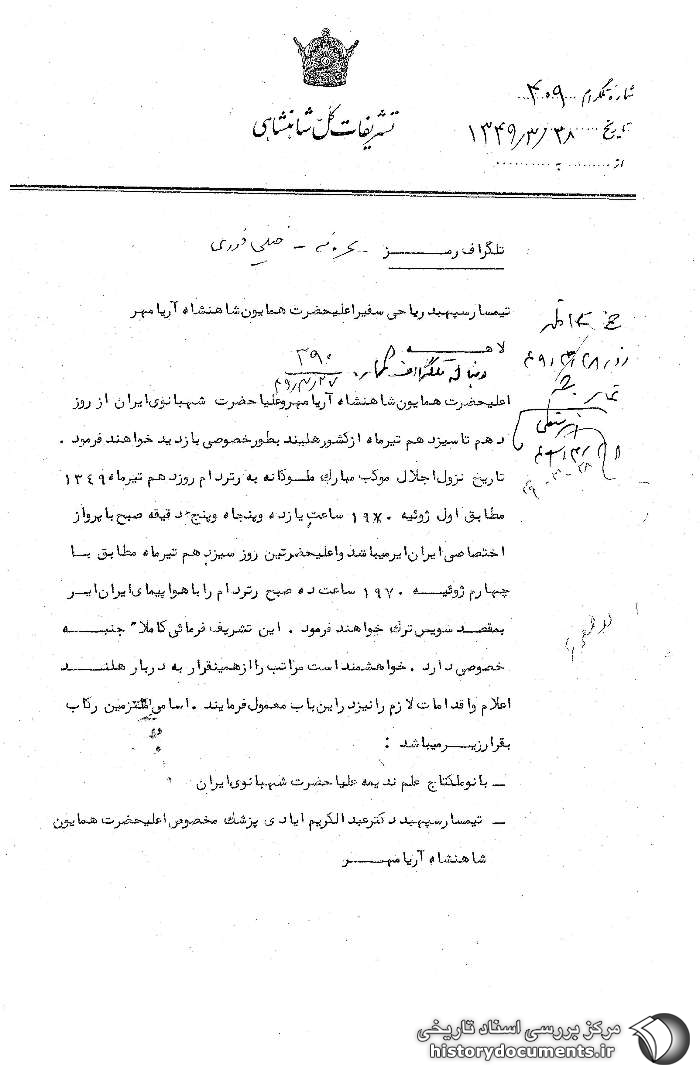 تشریفات کل شاهنشاهی
شماره تلگرام ۴۰۹
تاریخ ۱۳۴۹/۳/۲۸
از ........ به ........
تلگراف رمز - محرمانه - خیلی فوری
تیمسار سپهبد ریاحی سفیر اعلیحضرت همایون شاهنشاه آریامهر
لاهه
دنباله تلگراف شماره ۳۹۰
۴۹/۳/۲۷
اعلیحضرت همایون شاهنشاه آریامهر و علیا حضرت شهبانوی ایران از روز
دهم تا سیزدهم تیرماه از کشور هلند بطور خصوصی بازدید خواهند فرمود .
تاریخ نزول اجلال موکب مبارک ملوکانه به رتردام روز دهم تیرماه ۱۳۴۹
مطابق اول ژوئیه ۱۹۷۰ ساعت یازده و پنجاه و پنج دقیقه صبح با پرواز
اختصاصی ایران ایر میباشد و اعلیحضرتین روز سیزدهم تیرماه مطابق با
چهارم ژوئیه ۱۹۷۰ ساعت ده صبح رتردام را با هواپیمای ایران ایر
بمقصد سویس ترک خواهند فرمود . این تشریف فرمائی کاملا" جنبه
خصوصی دارد . خواهشمند است مراتب را از همینقرار به دربار هلند
اعلام و اقدامات لازم را نیز در این باب معمول فرمایند . اسامی ملتزمین رکاب
بقرار زیر میباشد :
ـ بانو ملکتاج علم ندیمه علیا حضرت شهبانوی ایران
ـ تیمسار سپهبد دکتر عبدالکریم ایادی پزشک مخصوص اعلیحضرت همایون
شاهنشاه آریامهر
مرکز بررسی اسناد تاریخی
historydocuments.ir